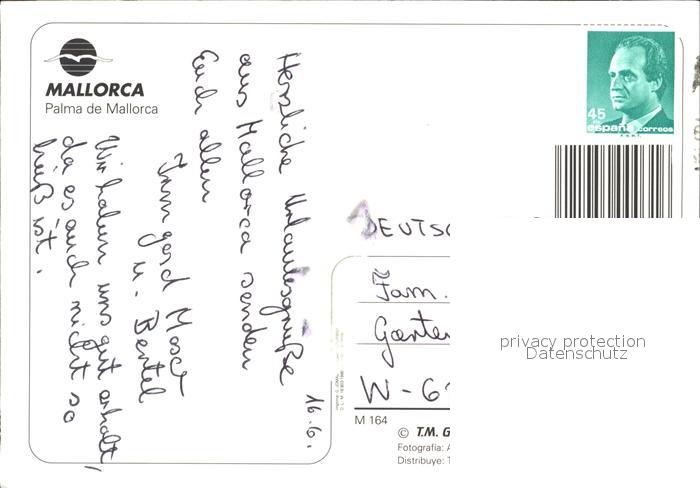 MALLORCA
Palma de Mallorca
16.6.
Herzliche Urlaubsgrüße
aus Mallorca senden
Euch allen
Irmgard Moser
u. Bertel
Wir haben uns gut erholt,
da es auch nicht so
heiß ist.
45
españa correos
DEUTSC
Fam.
Garten
W-6
M 164
© T.M. G
Fotografía: A
Distribuye: T
privacy protection
Datenschutz